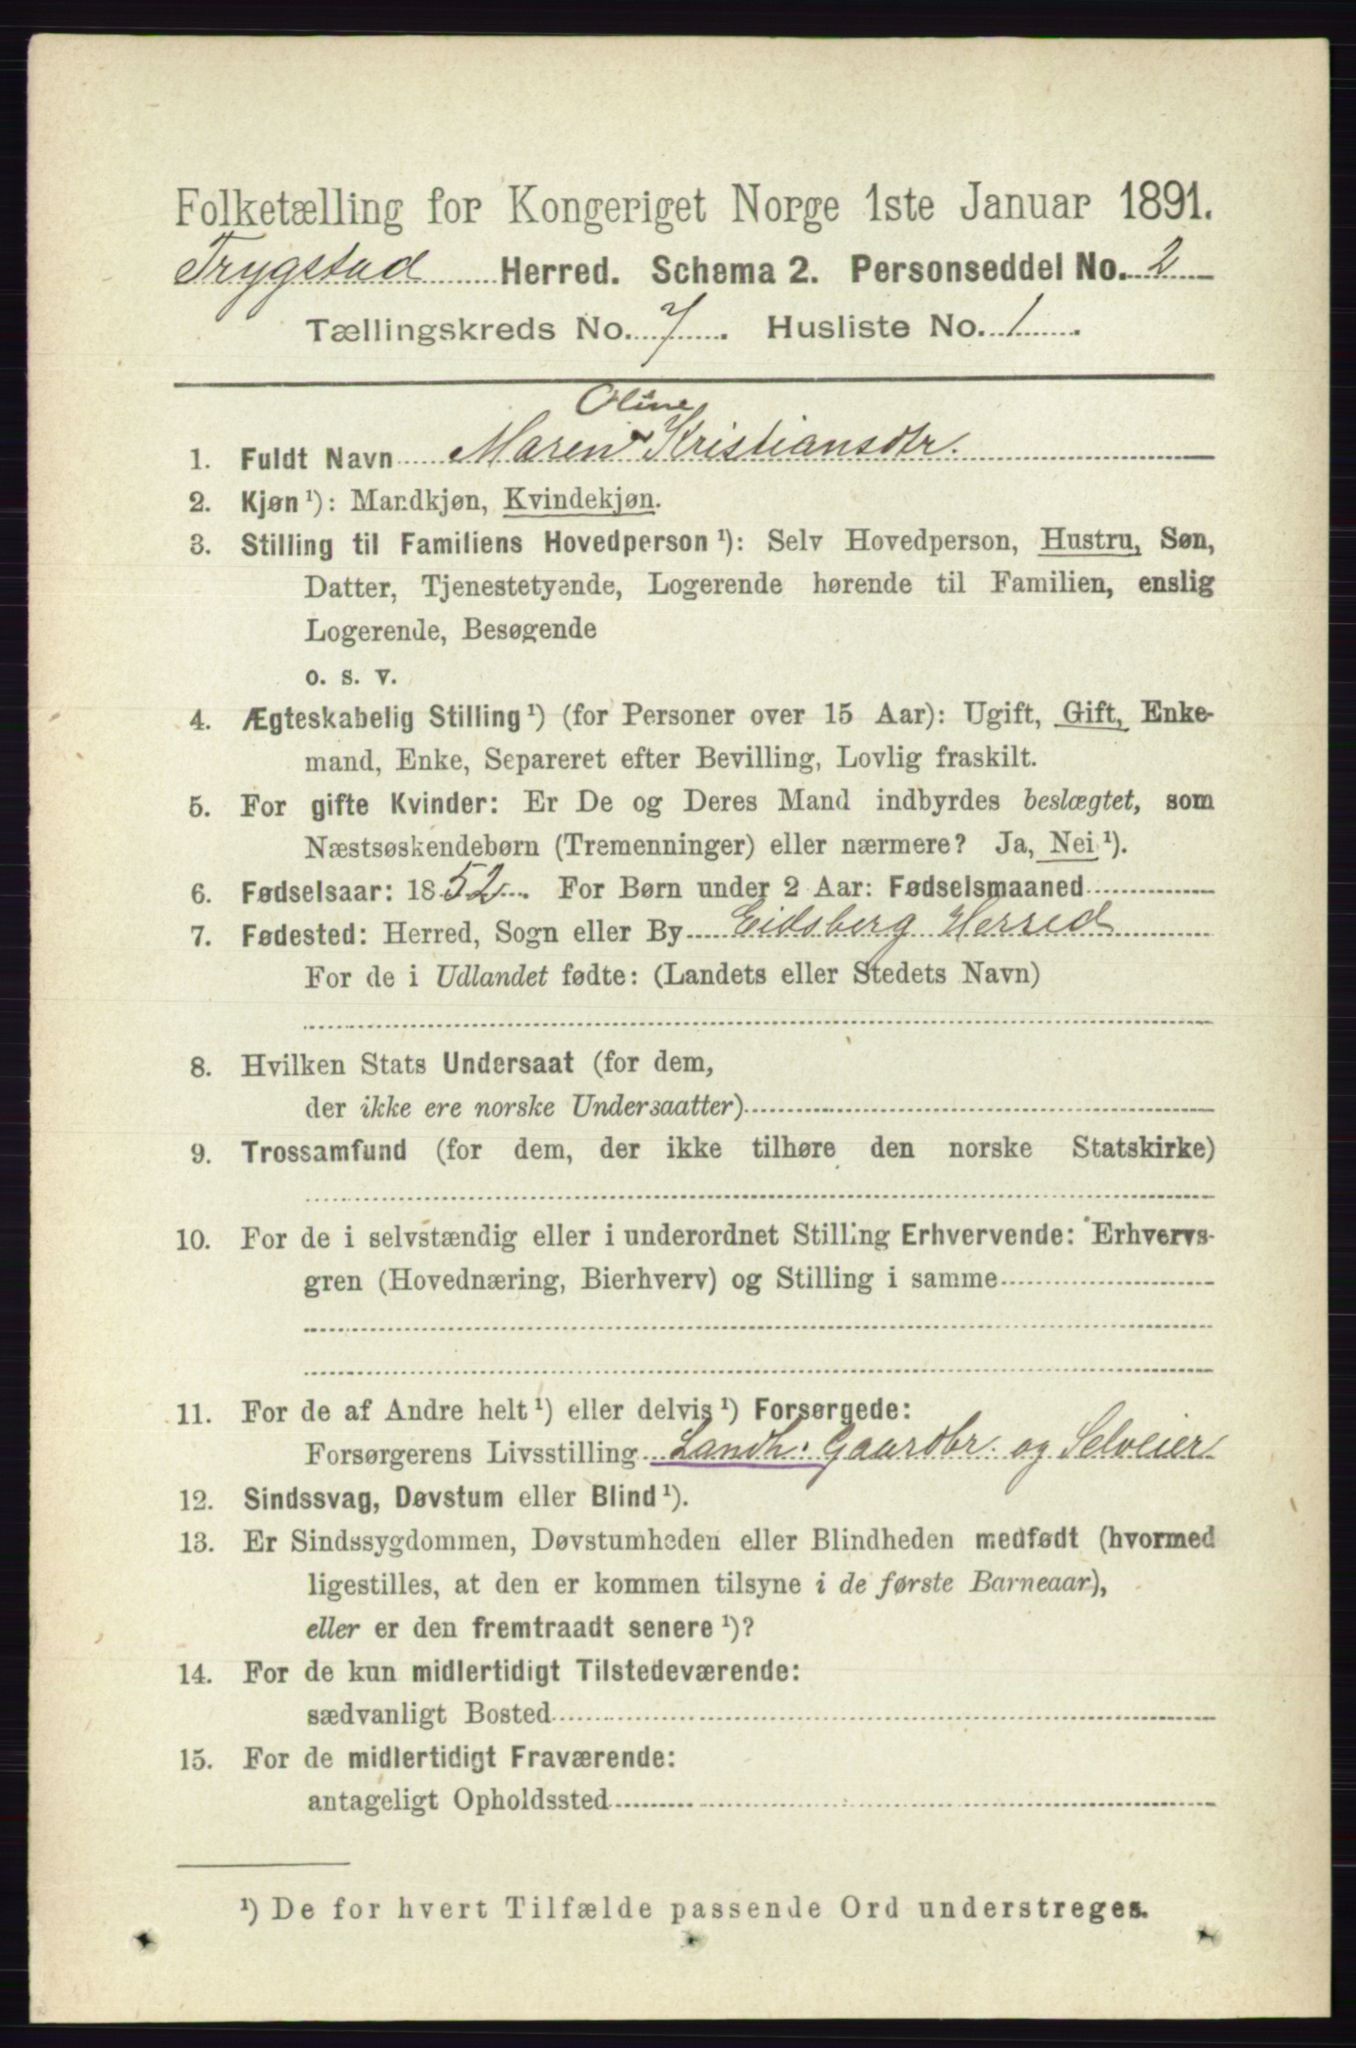 Folketælling for Kongeriget Norge 1ste Januar 1891.
Trygstad Herred. Schema 2. Personseddel No. 2
Tællingskreds No. 7. Husliste No. 1.
Oline
1. Fuldt Navn Maren Kristiansdtr.
2. Kjøn ¹): Mandkjøn, Kvindekjøn.
3. Stilling til Familiens Hovedperson ¹): Selv Hovedperson, Hustru, Søn,
Datter, Tjenestetyende, Logerende hørende til Familien, enslig
Logerende, Besøgende
o. s. v.
4. Ægteskabelig Stilling ¹) (for Personer over 15 Aar): Ugift, Gift, Enke-
mand, Enke, Separeret efter Bevilling, Lovlig fraskilt.
5. For gifte Kvinder: Er De og Deres Mand indbyrdes beslægtet, som
Næstsøskendebørn (Tremenninger) eller nærmere? Ja, Nei ¹).
6. Fødselsaar: 1852. For Børn under 2 Aar: Fødselsmaaned
7. Fødested: Herred, Sogn eller By Eidsberg Herred
For de i Udlandet fødte: (Landets eller Stedets Navn)
8. Hvilken Stats Undersaat (for dem,
der ikke ere norske Undersaatter)
9. Trossamfund (for dem, der ikke tilhøre den norske Statskirke)
10. For de i selvstændig eller i underordnet Stilling Erhvervende: Erhvervs-
gren (Hovednæring, Bierhverv) og Stilling i samme
11. For de af Andre helt ¹) eller delvis ¹) Forsørgede:
Forsørgerens Livsstilling Landh: Gaardbr. og Selveier
12. Sindssvag, Døvstum eller Blind ¹).
13. Er Sindssygdommen, Døvstumheden eller Blindheden medfødt (hvormed
ligestilles, at den er kommen tilsyne i de første Barneaar),
eller er den fremtraadt senere ¹)?
14. For de kun midlertidigt Tilstedeværende:
sædvanligt Bosted
15. For de midlertidigt Fraværende:
antageligt Opholdssted
¹) De for hvert Tilfælde passende Ord understreges.